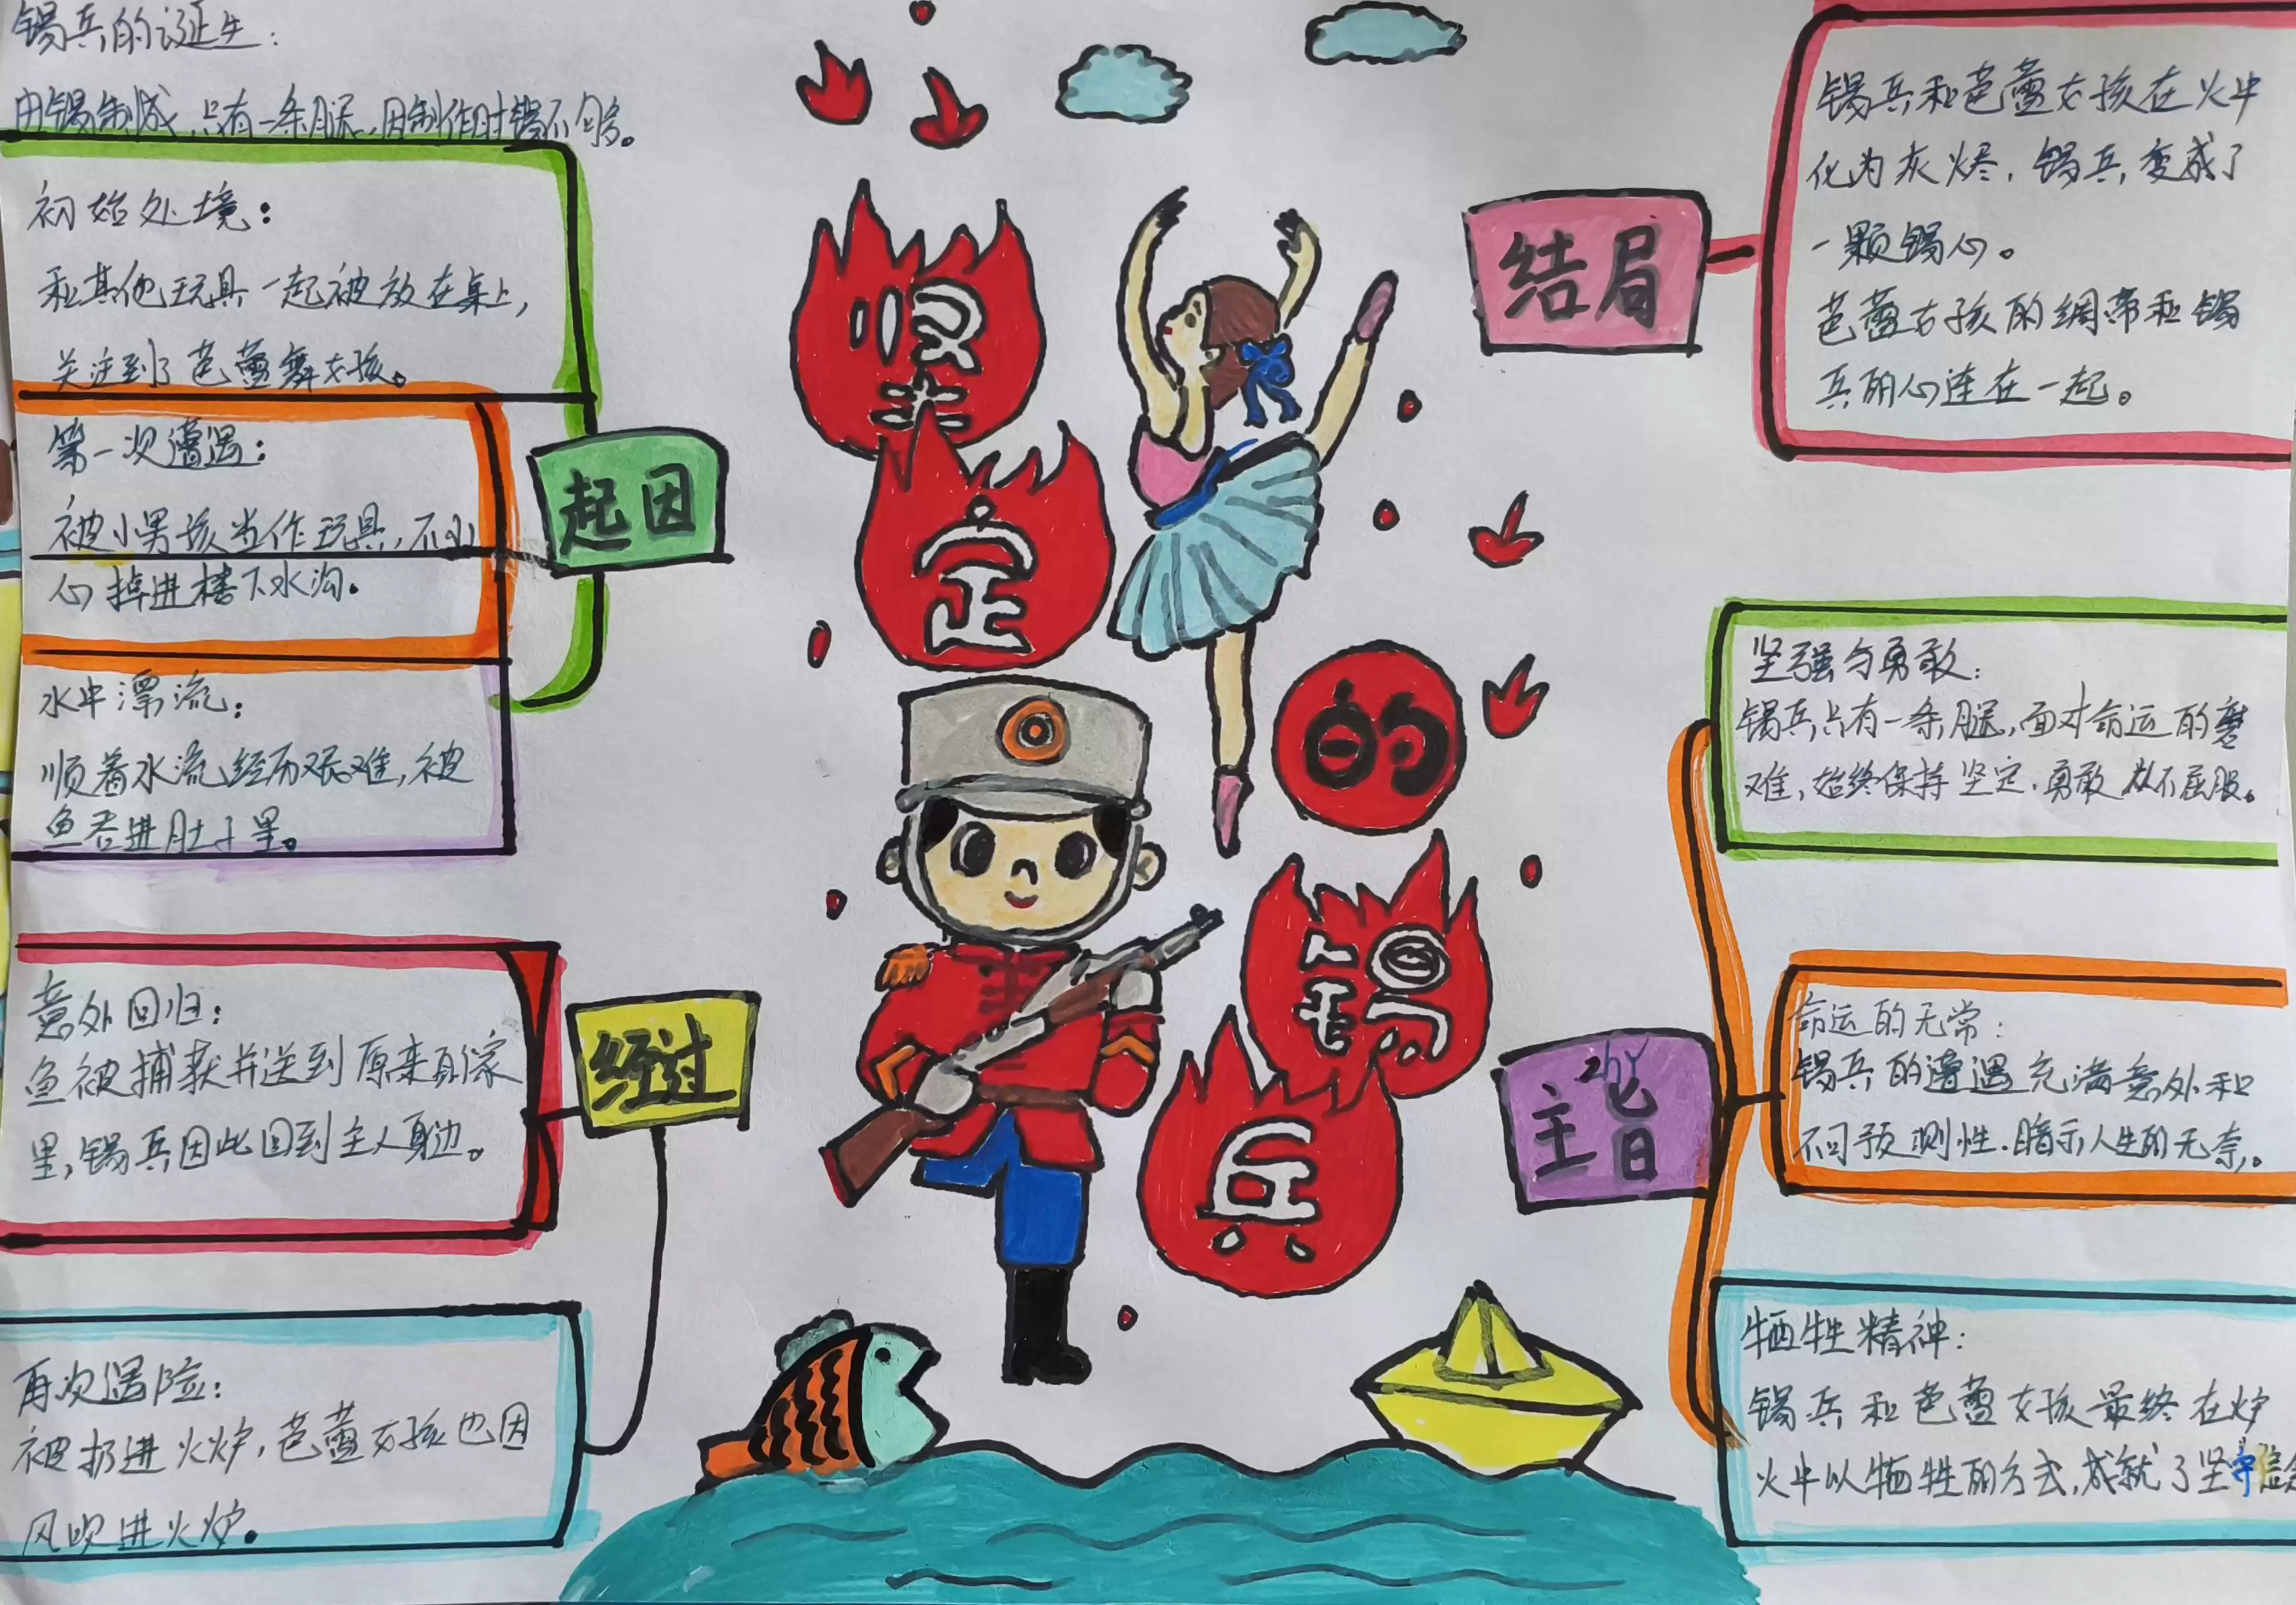 锡兵的诞生:
由锡制成,只有一条腿,因制作时锡不够。
初始处境:
和其他玩具一起被放在桌上,
关注到了芭蕾舞女孩。
起因
第一次遭遇:
被小男孩当作玩具,不小
心掉进楼下水沟。
水中漂流:
顺着水流经历艰难,被
鱼吞进肚子里。
意外回归:
鱼被捕获并送到原来的家
里,锡兵因此回到主人身边。
经过
再次遇险:
被扔进火炉,芭蕾女孩也因
风吹进火炉。
坚
定
的
锡
兵
结局
锡兵和芭蕾女孩在火中
化为灰烬,锡兵变成了
一颗锡心。
芭蕾女孩的绸带和锡
兵的心连在一起。
主旨
坚强与勇敢:
锡兵只有一条腿,面对命运的磨
难,始终保持坚定.勇敢从不屈服。
命运的无常:
锡兵的遭遇充满意外和
不可预测性.暗示人生的无奈。
牺牲精神:
锡兵和芭蕾女孩最终在炉
火中以牺牲的方式,成就了坚